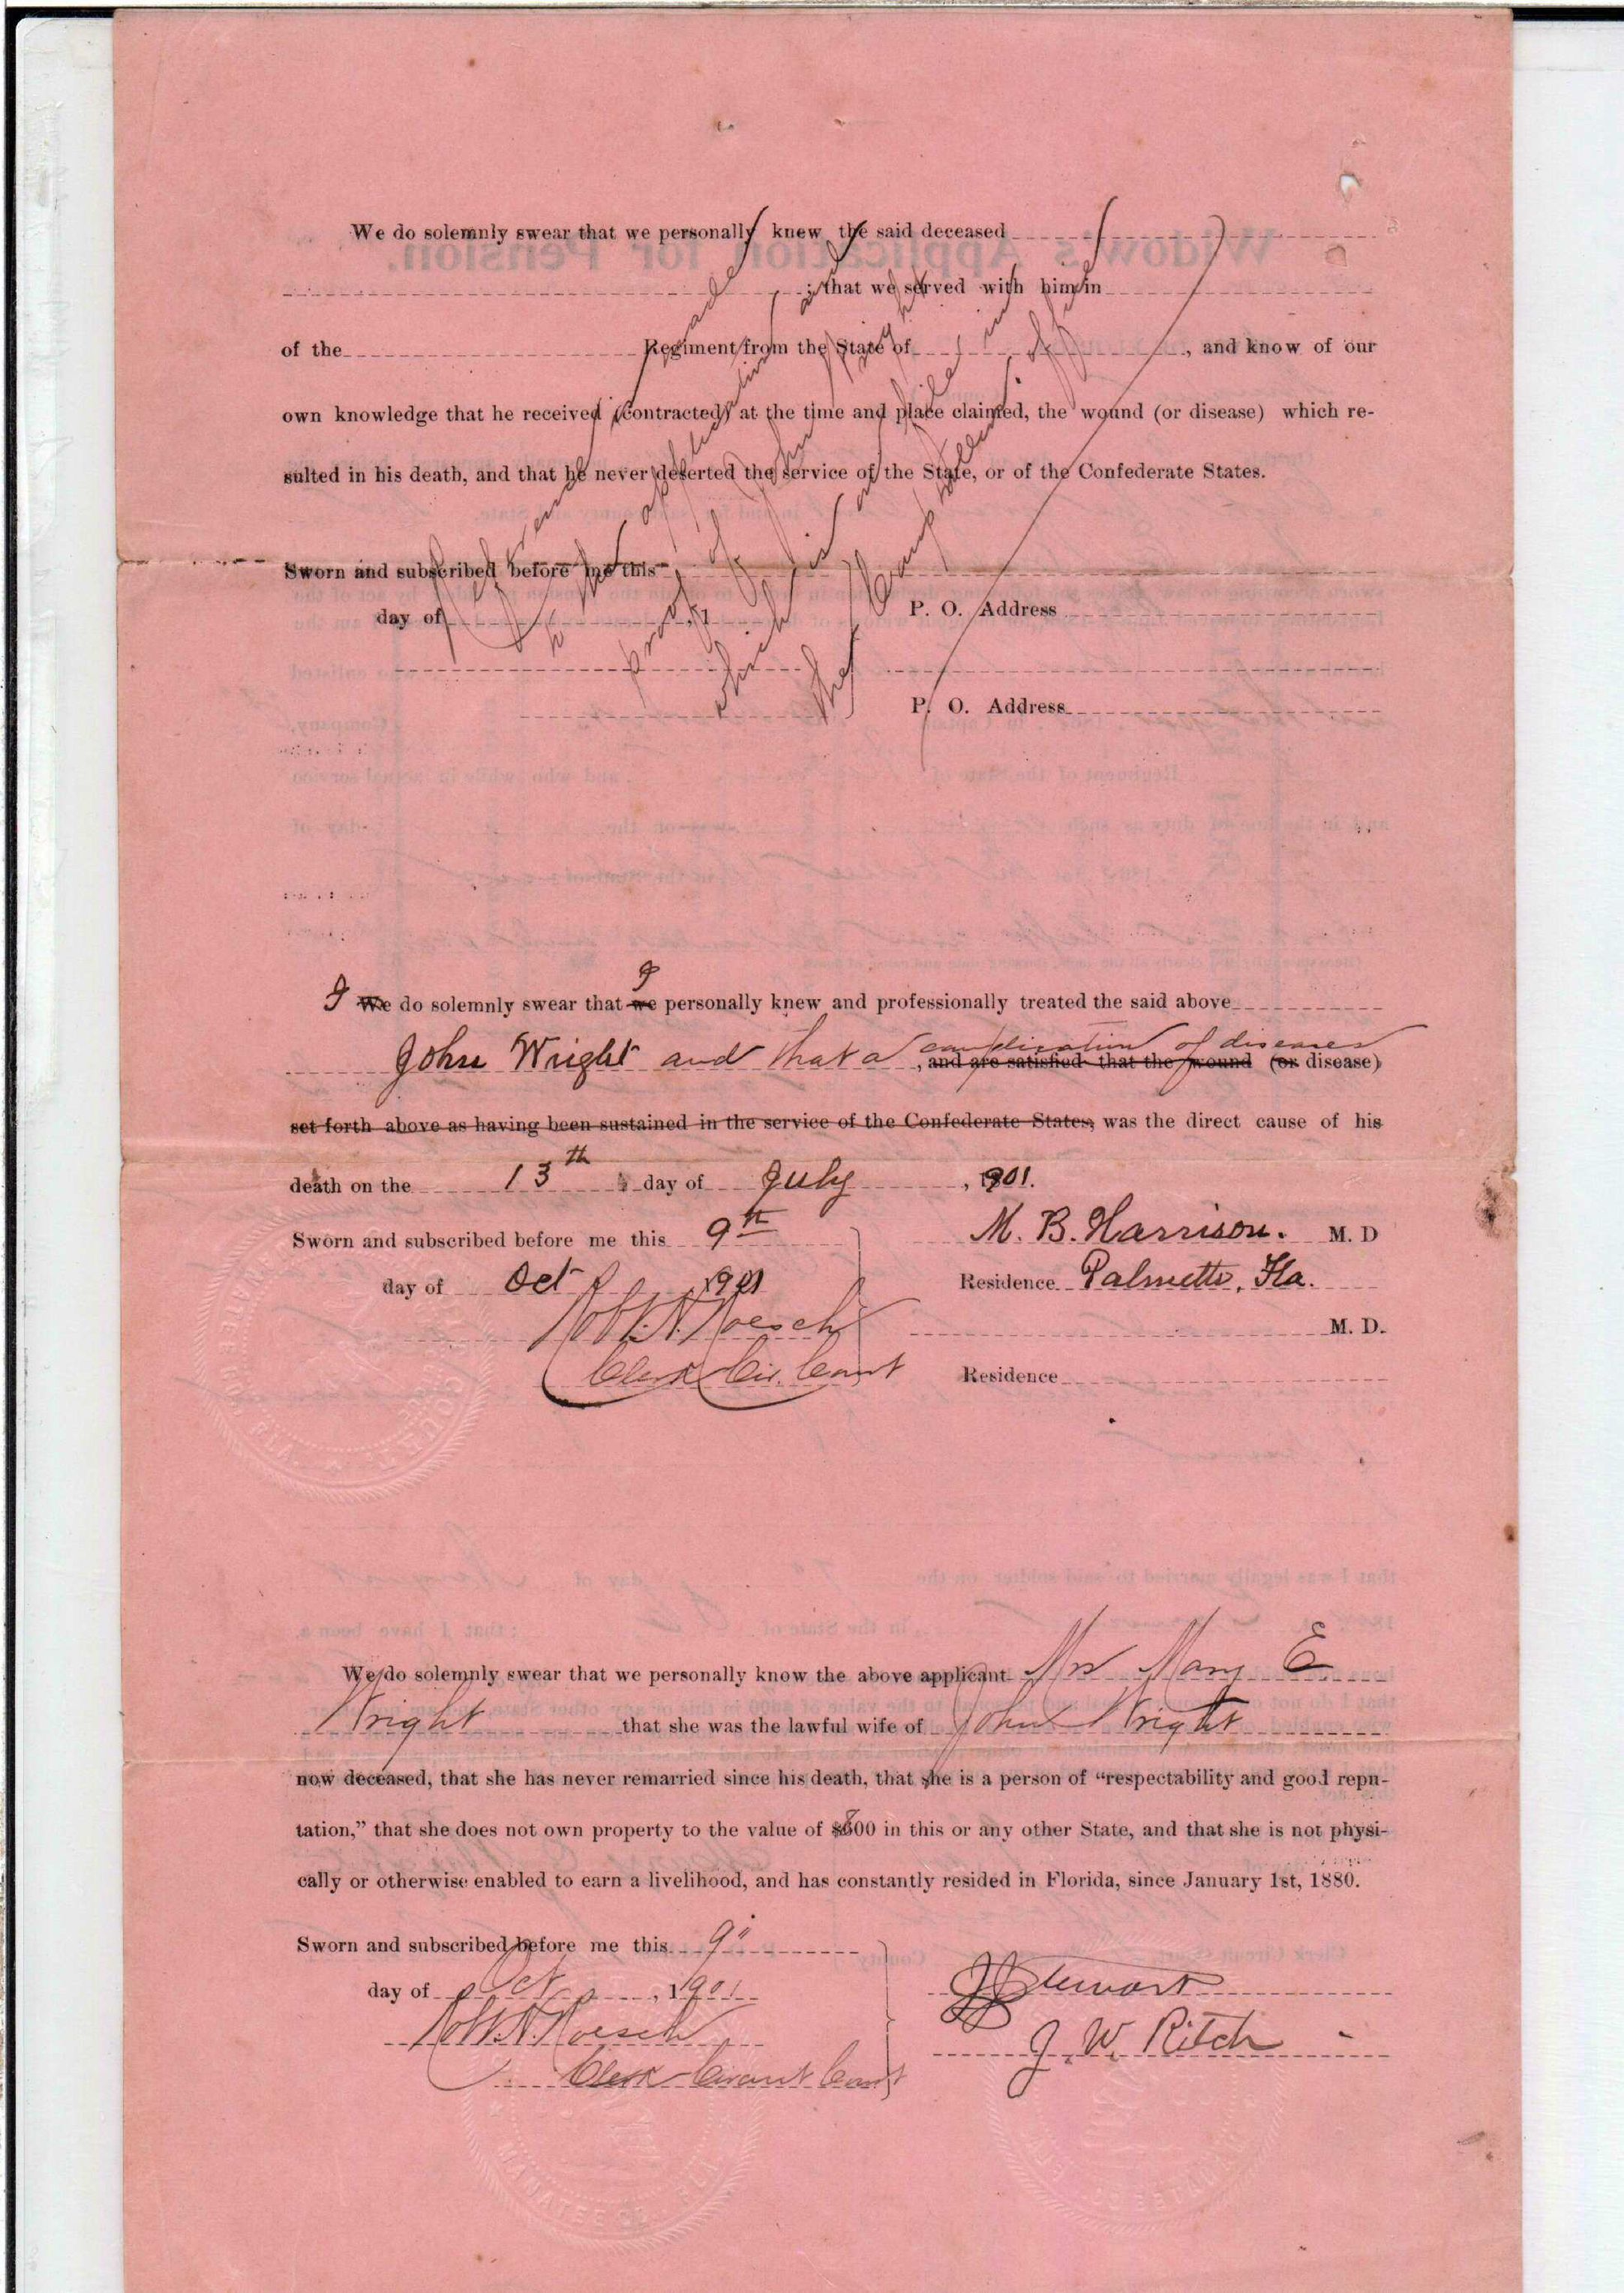 We do solemnly swear that we personally knew the said deceased
; that we served with him in
of the Regiment from the State of , and know of our
own knowledge that he received (contracted) at the time and place claimed, the wound (or disease) which re-
sulted in his death, and that he never deserted the service of the State, or of the Confederate States.
Reference made
to the application and
proof of John Wright
which is on file in
the Comptroller's office
Sworn and subscribed before me this
day of , 1
P. O. Address
P. O. Address
I We do solemnly swear that we I personally knew and professionally treated the said above
John Wright and that a complication of diseases , and are satisfied that the wound (or disease)
set forth above as having been sustained in the service of the Confederate States, was the direct cause of his
death on the 13th day of July , 1901.
Sworn and subscribed before me this 9th
day of Oct 1901
Robt. H. Roesch
Clerk Cir. Court
M. B. Harrison. M. D
Residence Palmetto, Fla.
M. D.
Residence
We do solemnly swear that we personally know the above applicant Mrs Mary E.
Wright that she was the lawful wife of John Wright
now deceased, that she has never remarried since his death, that she is a person of “respectability and good repu-
tation,” that she does not own property to the value of $800 in this or any other State, and that she is not physi-
cally or otherwise enabled to earn a livelihood, and has constantly resided in Florida, since January 1st, 1880.
Sworn and subscribed before me this 9"
day of Oct , 1901
Robt. H. Roesch
Clerk Circuit Court
J J Stewart
J. W. Ritch
MANATEE CO. FLA.